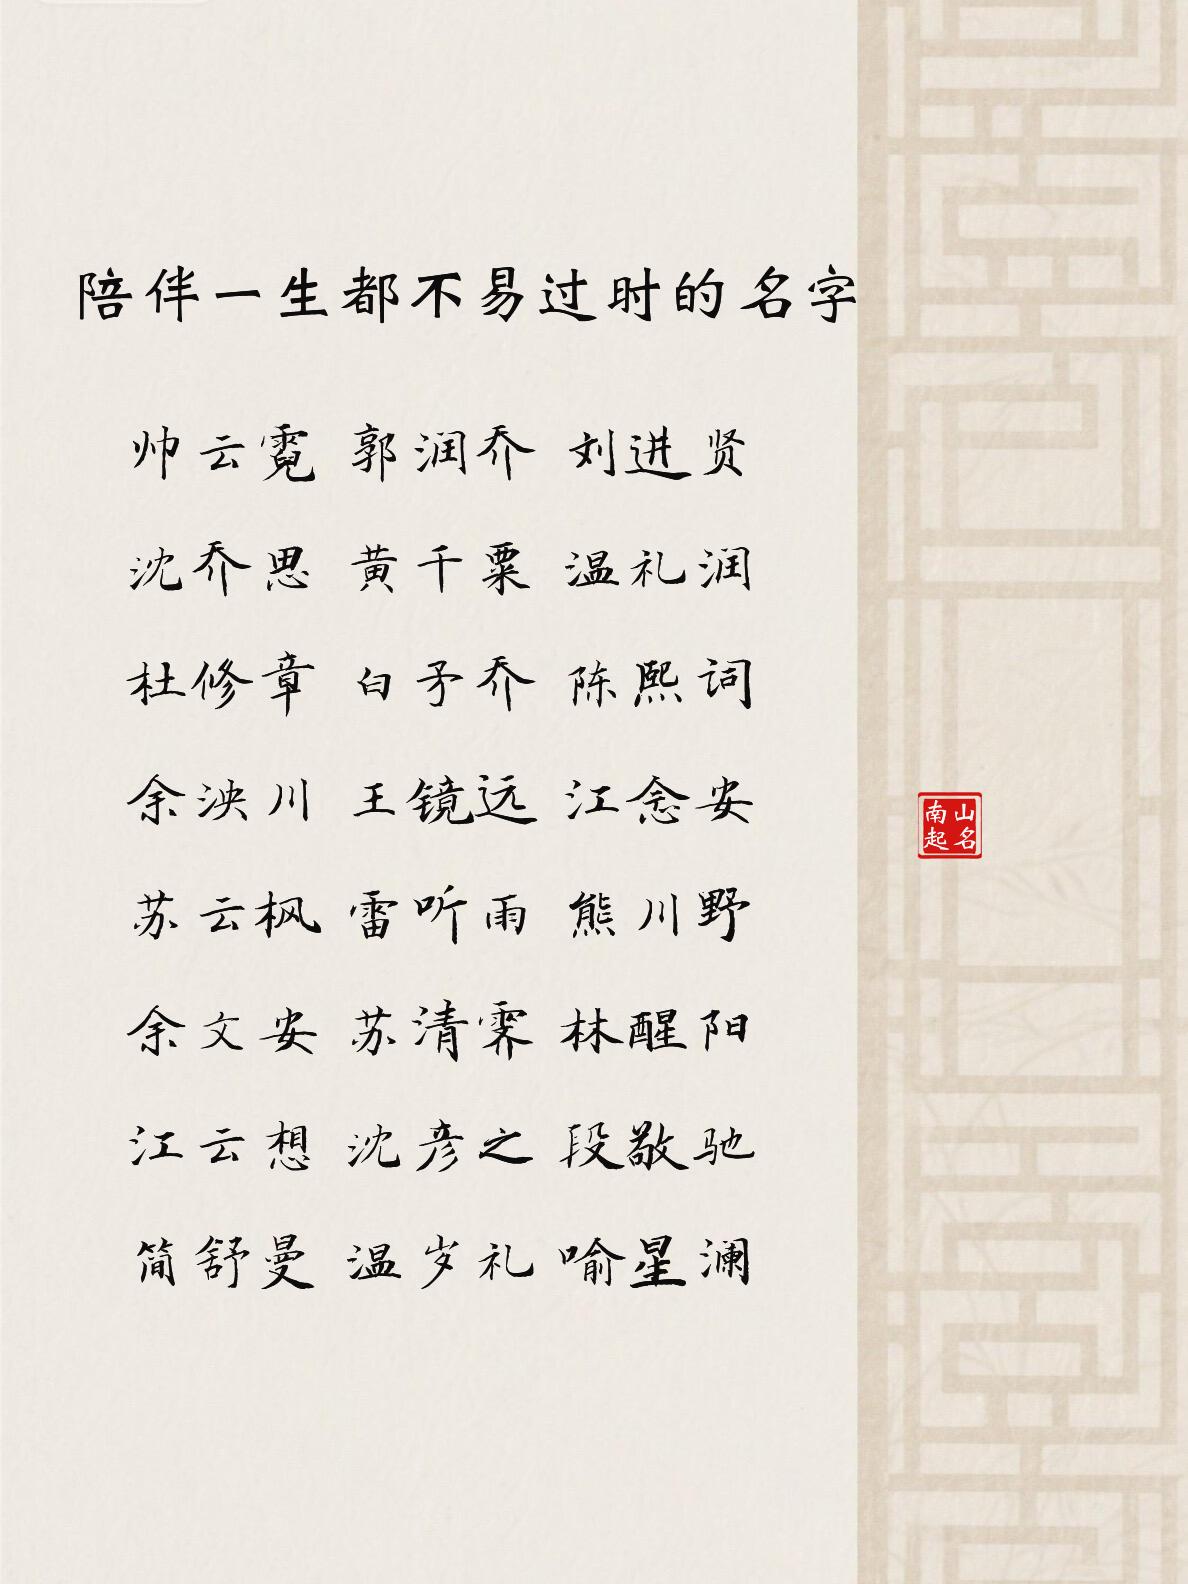 陪伴一生都不易过时的名字
帅云霓 郭润乔 刘进贤
沈乔思 黄千粟 温礼润
杜修章 白矛乔 陈熙词
余泱川 王镜远 江念安
苏云枫 雷听雨 熊川野
余文安 苏清霁 林醒阳
江云想 沈彦之 段敬驰
简舒曼 温岁礼 喻星澜
南山
起名